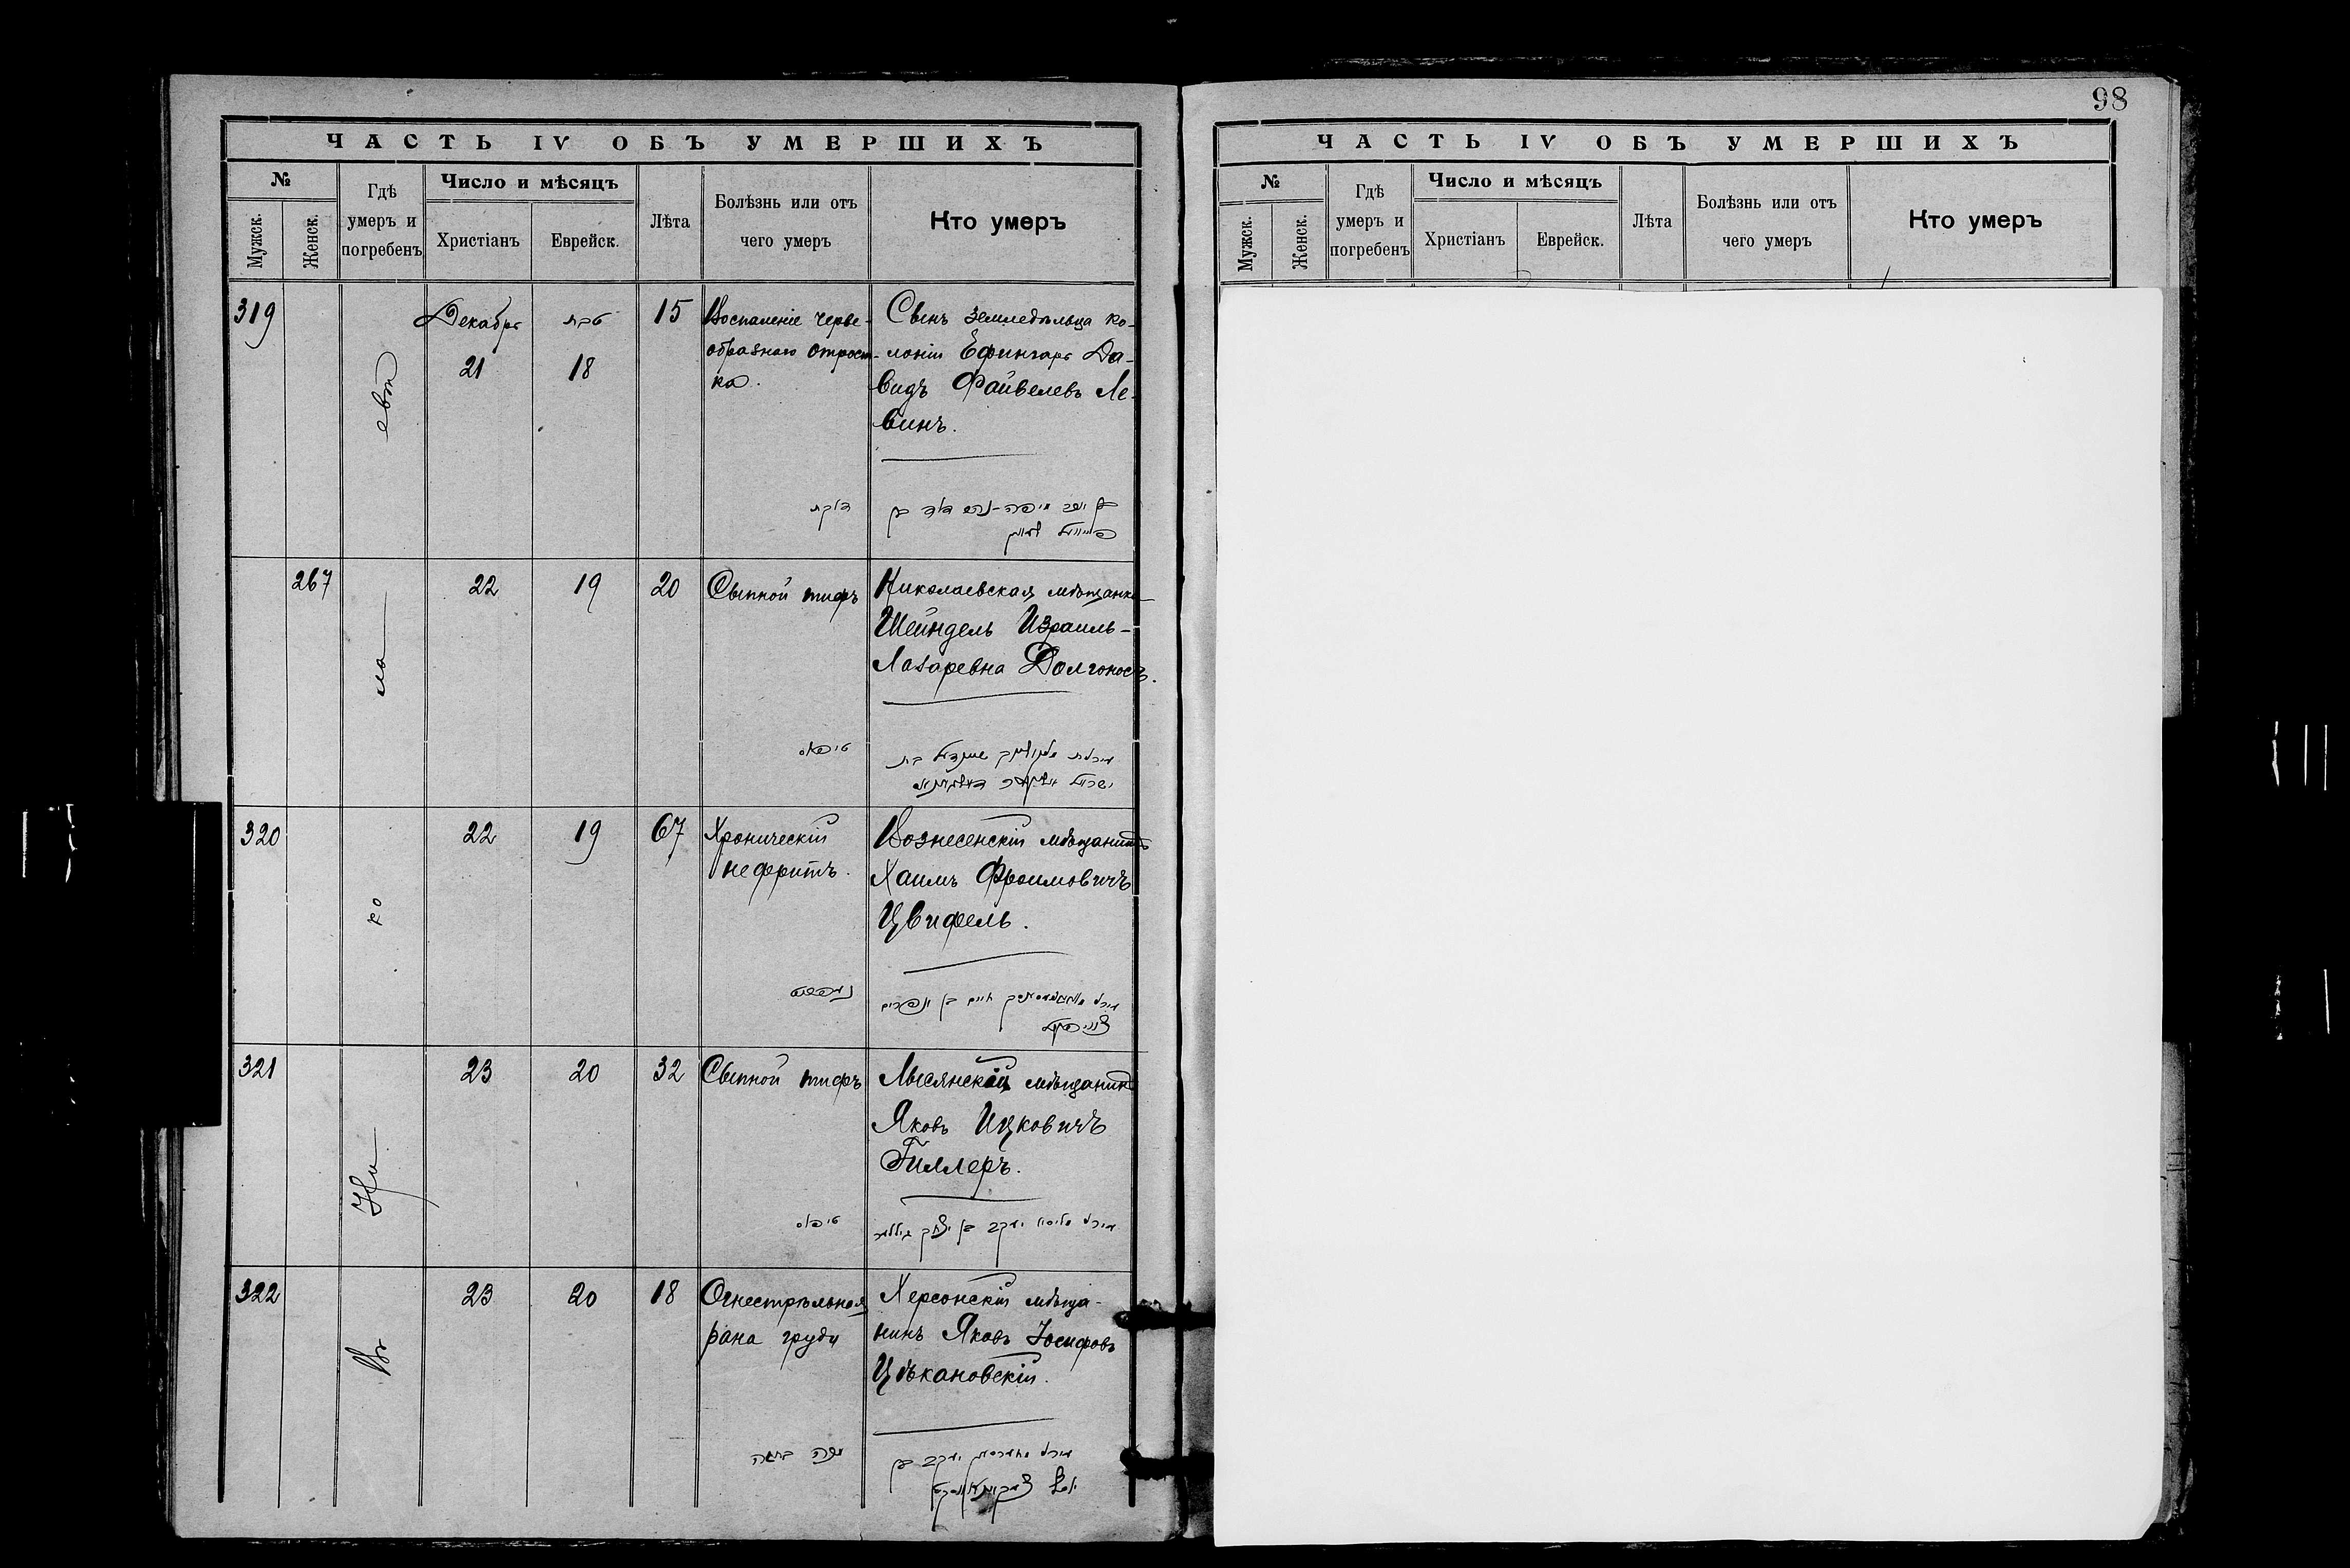 98
ЧАСТЬ IV ОБЪ УМЕРШИХЪ
№
Мужск.
Женск.
Гдѣ
умеръ и
погребенъ
Число и мѣсяцъ
Христіанъ
Еврейск.
Лѣта
Болѣзнь или отъ
чего умеръ
Кто умеръ
319
Декабря
21
טבת
18
15
Воспаленіе черве-
образнаго отрост-
ка.
Сынъ земледѣльца ко-
лоніи Ефингаръ Да-
видъ Файвелевъ Ле-
винъ.
דלקת
דוד בן
לעווין
267
22
19
20
Сыпной тифъ
Николаевская мѣщанка
Шейндель Израиль-
Лазаревна Долгоносъ.
טיפוס
שיינדל בת
ישראל
320
22
19
67
Хроническій
нефритъ.
Вознесенскій мѣщанинъ
Хаимъ Фроимовичъ
Цвифель.
חיים בן אפרים
צוויפעל
321
23
20
32
Сыпной тифъ
Лысянскій мѣщанинъ
Яковъ Ицковичъ
Гиллеръ.
טיפוס
יעקב בן יצחק גיללער
322
23
20
18
Огнестрѣльная
рана груди
Херсонскій мѣща-
нинъ Яковъ Іосифовъ
Цѣкановскій.
יעקב בן
יוסף
Въ
Ни
ко
ла
евѣ
ЧАСТЬ IV ОБЪ УМЕРШИХЪ
№
Мужск.
Женск.
Гдѣ
умеръ и
погребенъ
Число и мѣсяцъ
Христіанъ
Еврейск.
Лѣта
Болѣзнь или отъ
чего умеръ
Кто умеръ